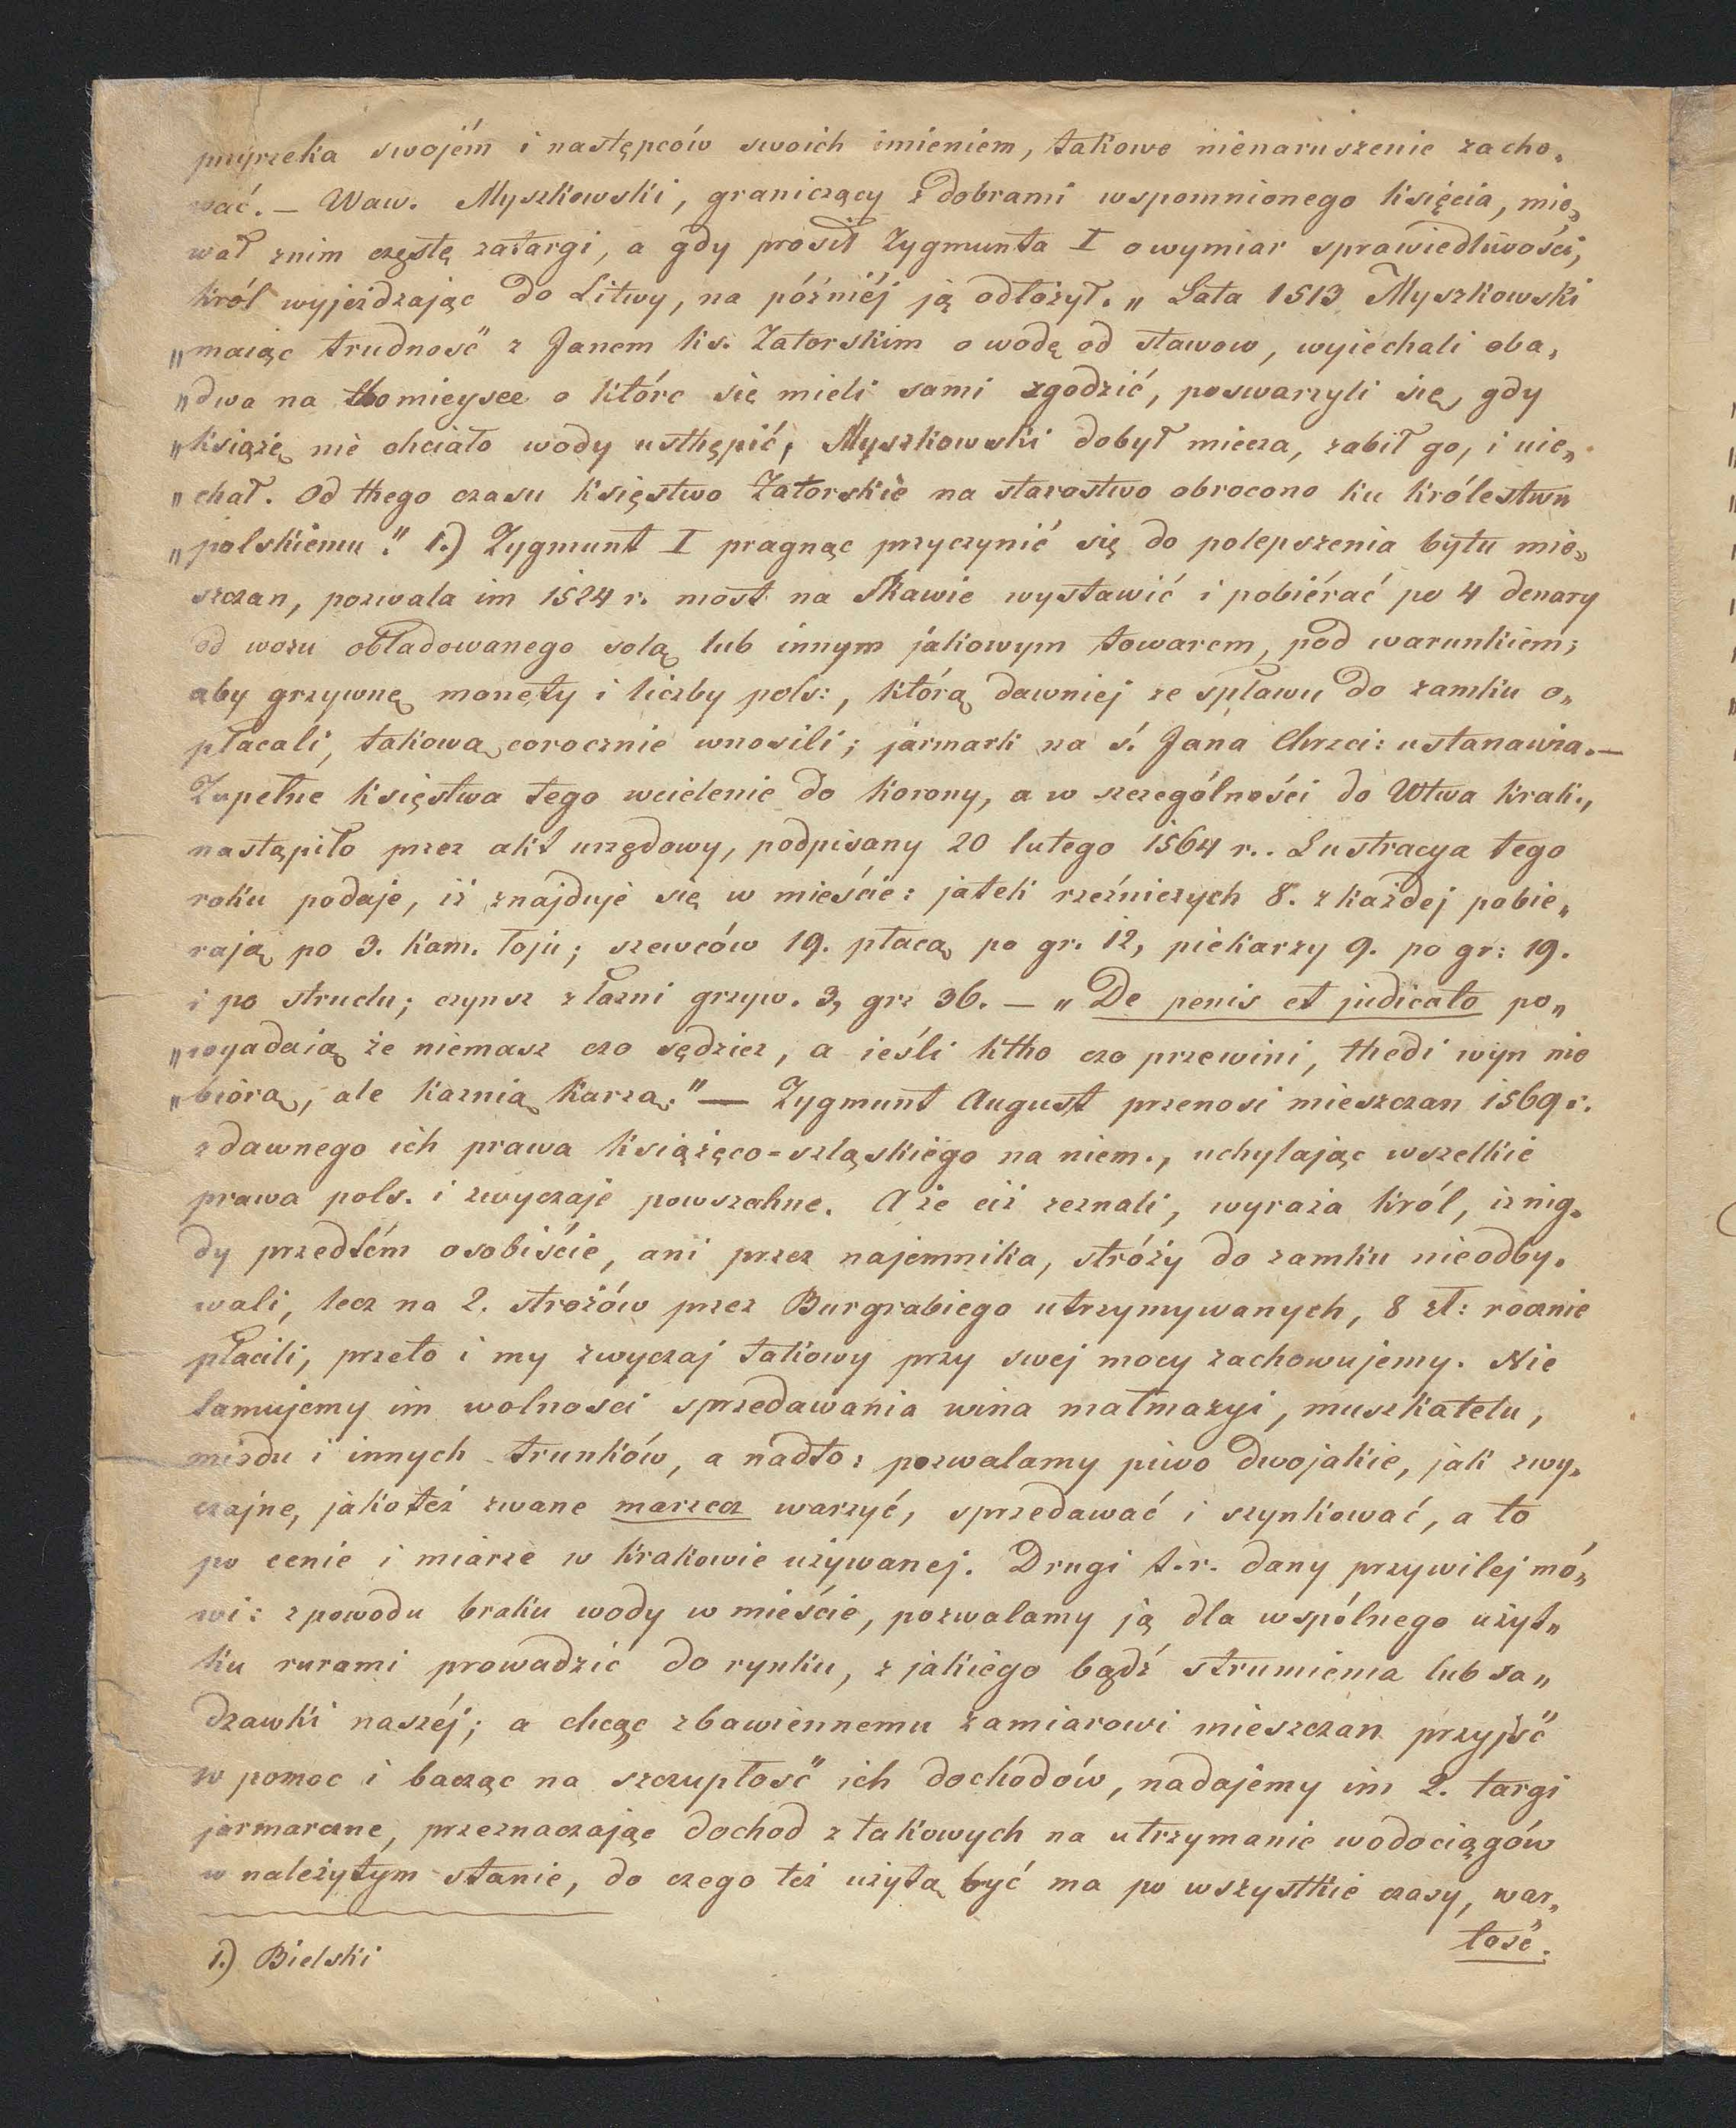 przyrzeka swojém i następców swoich imieniem, takowe nienaruszenie zacho„
wać. — Waw. Myszkowski, graniczący z dobrami wspomnionego księcia, mie„
wał znim częste zatargi, a gdy prosił Zygmunta I o wymiar sprawiedliwości,
król wyjeżdzając do Litwy, na późniéj ją odłożył. „ Lata 1513 Myszkowski
„maiąc trudność z Janem ks. Zatorskim o wodę od stawow, wyiechali oba„
„dwa na tho mieysce o które się mieli sami zgodzić, poswarzyli się, gdy
„książę nie chciało wody usthępić, Myszkowski dobył miecza, zabił go, i uie„
„chał. Od thego czasu księstwo Zatorskie na starostwo obrocono ku królestwu
„polskiemu." 1.) Zygmunt I pragnąc przyczynić się do polepszenia bytu mie„
szczan, pozwala im 1524 r. most na Skawie wystawić i pobiérać po 4 denary
od wozu obładowanego solą lub innym jakowym towarem, pod warunkiem;
aby grzywnę monety i liczby pols:, którą dawniej ze spławu do zamku o„
płacali, takową corocznie wnosili; jarmark na ś. Jana Chrzci: ustanawia. —
Zupełne księstwa tego wcielenie do korony, a w szczególności do Wtwa krak.,
nastąpiło przez akt urzędowy, podpisany 20 lutego 1564 r.. Lustracya tego
roku podaje, iż znajduje się w mieście: jatek rzeźniczych 8. z każdej pobie„
rają po 3. kam. łoju; szewców 19. płacą po gr. 12, piekarzy 9. po gr: 19.
i po struclu; czynsz z łaźni grzyw. 3, gr: 36. — „De penis et judicato po„
„wyadaią że niemasz czo sędzicz, a ieśli ktho czo przewini, thedi wyn nie
„biorą, ale kaznią karzą." — Zygmunt August przenosi mieszczan 1569 r.
z dawnego ich prawa książęco=szląskiego na niem., uchylając wszelkie
prawa pols. i zwyczaje powszechne. A że ciż zeznali, wyraża król, iż nig„
dy przedtém osobiście, ani przez najemnika, stróży do zamku nieodby„
wali, lecz na 2. stróżów przez Burgrabiego utrzymywanych, 8 zł: rocznie
płacili, przeto i my zwyczaj takowy przy swej mocy zachowujemy. Nie
tamujemy im wolności sprzedawania wina małmazyi, muszkatelu,
miodu i innych trunków, a nadto: pozwalamy piwo dwojakie, jak zwy„
czajne, jakoteż zwane marzecz warzyć, sprzedawać i szynkować, a to
po cenie i miarze w Krakowie używanej. Drugi t.r. dany przywilej mó„
wi: z powodu braku wody w mieście, pozwalamy ją dla wspólnego użyt„
ku rurami prowadzić do rynku, z jakiego bądź strumienia lub sa„
dzawki naszéj; a chcąc zbawiennemu zamiarowi mieszczan przyjść
w pomoc i bacząc na szczupłość ich dochodów, nadajemy im 2. targi
jarmarczne, przeznaczając dochod z takowych na utrzymanie wodociągów
w należytym stanie, do czego też użytą być ma po wszystkie czasy, war„
tość.
1.) Bielski